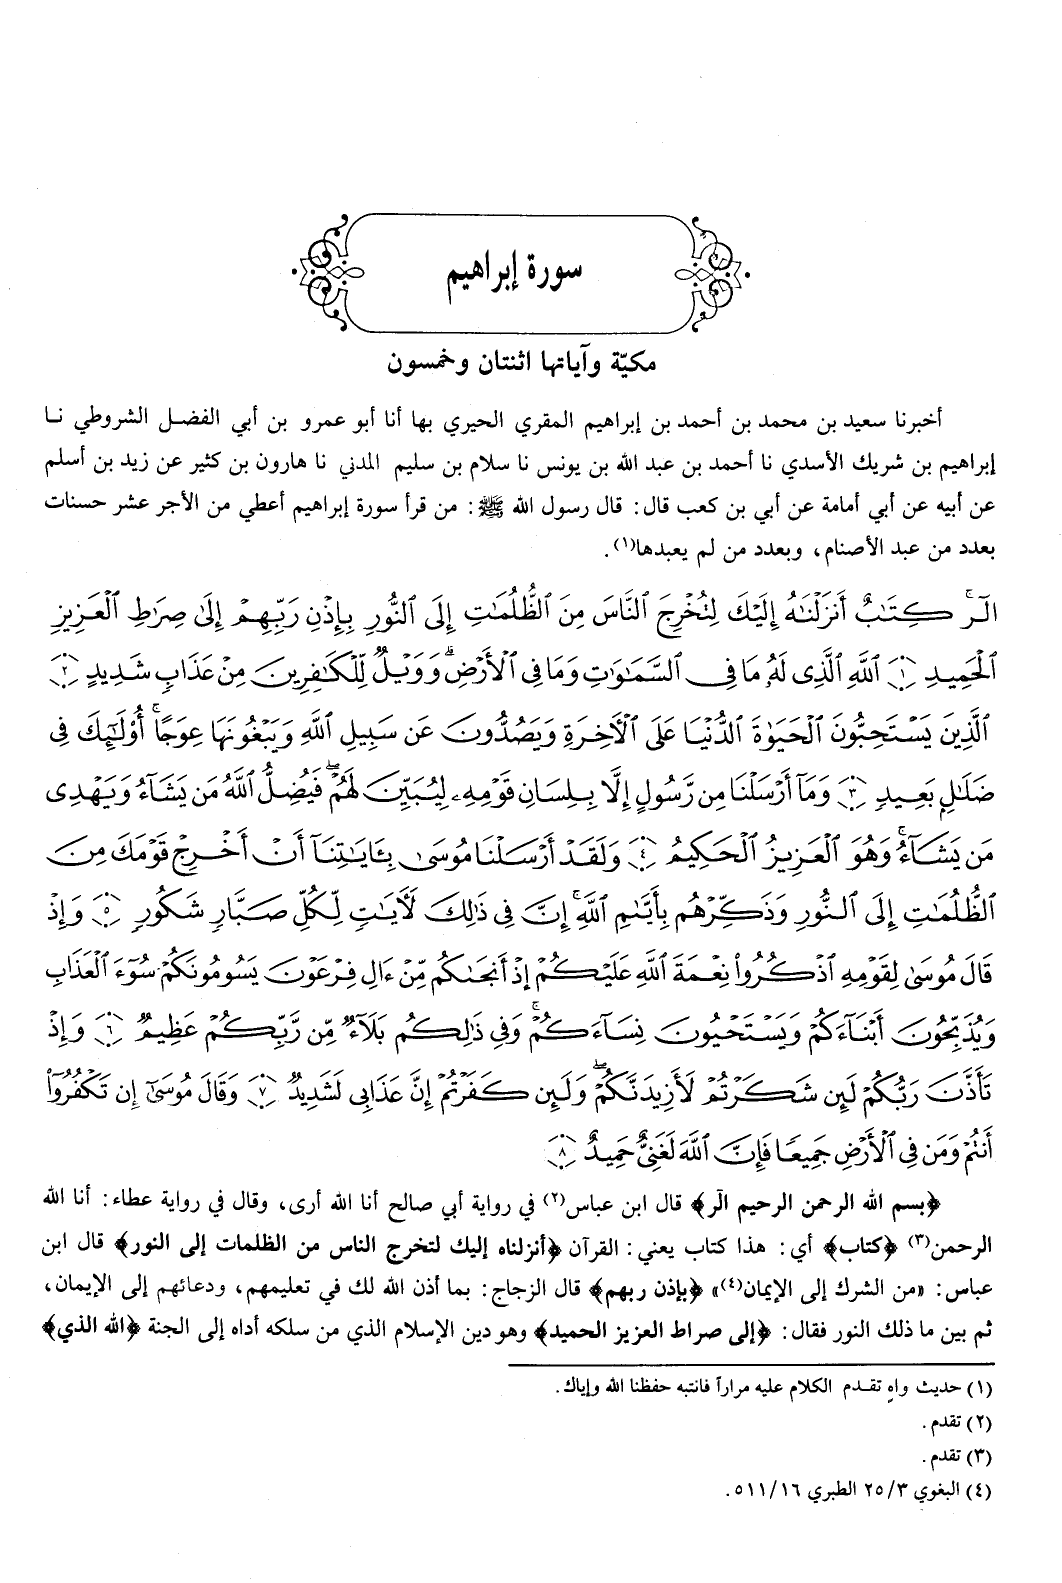 سورة إبراهيم
مكيّة وآياتها اثنتان وخمسون
أخبرنا سعيد بن محمد بن أحمد بن إبراهيم المقري الحيري بها أنا أبو عمرو بن أبي الفضل الشروطي نا
إبراهيم بن شريك الأسدي نا أحمد بن عبد الله بن يونس نا سلام بن سليم المدني نا هارون بن كثير عن زيد بن أسلم
عن أبيه عن أبي أمامة عن أبي بن كعب قال: قال رسول الله ﷺ: من قرأ سورة إبراهيم أعطي من الأجر عشر حسنات
بعدد من عبد الأصنام، وبعدد من لم يعبدها(١).
الٓرۚ كِتَٰبٌ أَنزَلْنَٰهُ إِلَيْكَ لِتُخْرِجَ ٱلنَّاسَ مِنَ ٱلظُّلُمَٰتِ إِلَى ٱلنُّورِ بِإِذْنِ رَبِّهِمْ إِلَىٰ صِرَٰطِ ٱلْعَزِيزِ
ٱلْحَمِيدِ ﴿١﴾ ٱللَّهِ ٱلَّذِى لَهُۥ مَا فِى ٱلسَّمَٰوَٰتِ وَمَا فِى ٱلْأَرْضِۗ وَوَيْلٌ لِّلْكَٰفِرِينَ مِنْ عَذَابٍ شَدِيدٍ ﴿٢﴾
ٱلَّذِينَ يَسْتَحِبُّونَ ٱلْحَيَوٰةَ ٱلدُّنْيَا عَلَى ٱلْءَاخِرَةِ وَيَصُدُّونَ عَن سَبِيلِ ٱللَّهِ وَيَبْغُونَهَا عِوَجًاۚ أُوْلَٰٓئِكَ فِى
ضَلَٰلٍۭ بَعِيدٍ ﴿٣﴾ وَمَآ أَرْسَلْنَا مِن رَّسُولٍ إِلَّا بِلِسَانِ قَوْمِهِۦ لِيُبَيِّنَ لَهُمْۖ فَيُضِلُّ ٱللَّهُ مَن يَشَآءُ وَيَهْدِى
مَن يَشَآءُۚ وَهُوَ ٱلْعَزِيزُ ٱلْحَكِيمُ ﴿٤﴾ وَلَقَدْ أَرْسَلْنَا مُوسَىٰ بِـَٔايَٰتِنَآ أَنْ أَخْرِجْ قَوْمَكَ مِنَ
ٱلظُّلُمَٰتِ إِلَى ٱلنُّورِ وَذَكِّرْهُم بِأَيَّىٰمِ ٱللَّهِۚ إِنَّ فِى ذَٰلِكَ لَءَايَٰتٍ لِّكُلِّ صَبَّارٍ شَكُورٍ ﴿٥﴾ وَإِذْ
قَالَ مُوسَىٰ لِقَوْمِهِ ٱذْكُرُوا۟ نِعْمَةَ ٱللَّهِ عَلَيْكُمْ إِذْ أَنجَىٰكُم مِّنْ ءَالِ فِرْعَوْنَ يَسُومُونَكُمْ سُوٓءَ ٱلْعَذَابِ
وَيُذَبِّحُونَ أَبْنَآءَكُمْ وَيَسْتَحْيُونَ نِسَآءَكُمْۚ وَفِى ذَٰلِكُم بَلَآءٌ مِّن رَّبِّكُمْ عَظِيمٌ ﴿٦﴾ وَإِذْ
تَأَذَّنَ رَبُّكُمْ لَئِن شَكَرْتُمْ لَأَزِيدَنَّكُمْۖ وَلَئِن كَفَرْتُمْ إِنَّ عَذَابِى لَشَدِيدٌ ﴿٧﴾ وَقَالَ مُوسَىٰٓ إِن تَكْفُرُوٓا۟
أَنتُمْ وَمَن فِى ٱلْأَرْضِ جَمِيعًا فَإِنَّ ٱللَّهَ لَغَنِىٌّ حَمِيدٌ ﴿٨﴾
﴿بسم الله الرحمن الرحيم الٓر﴾ قال ابن عباس(٢) في رواية أبي صالح أنا الله أرى، وقال في رواية عطاء: أنا الله
الرحمن(٣) ﴿كتاب﴾ أي: هذا كتاب يعني: القرآن ﴿أنزلناه إليك لتخرج الناس من الظلمات إلى النور﴾ قال ابن
عباس: «من الشرك إلى الإيمان(٤)» ﴿بإذن ربهم﴾ قال الزجاج: بما أذن الله لك في تعليمهم، ودعائهم إلى الإيمان،
ثم بين ما ذلك النور فقال: ﴿إلى صراط العزيز الحميد﴾ وهو دين الإسلام الذي من سلكه أداه إلى الجنة ﴿الله الذي﴾
(١) حديث واهٍ تقدم الكلام عليه مراراً فانتبه حفظنا الله وإياك.
(٢) تقدم.
(٣) تقدم.
(٤) البغوي ٢٥/٣ الطبري ٥١١/١٦.